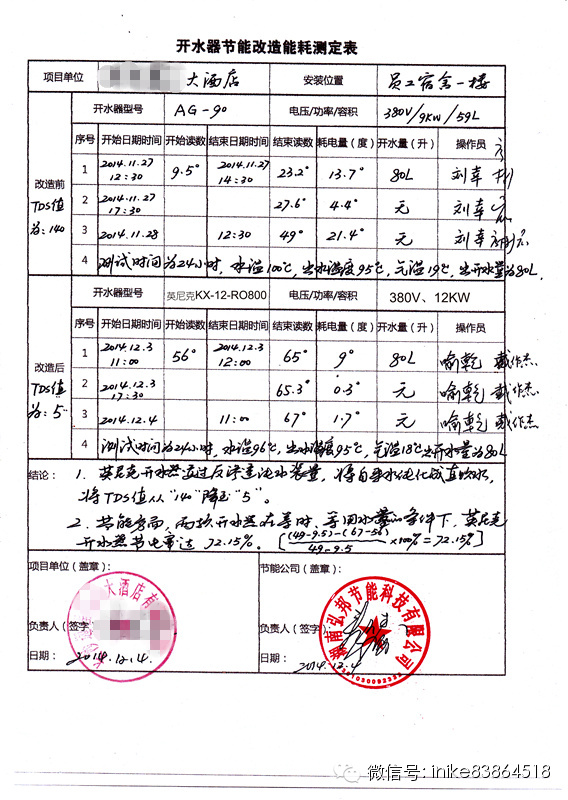 开水器节能改造能耗测定表
项目单位 大酒店 安装位置 员工宿舍一楼
改造前 TDS值为:140
开水器型号 AG-90 电压/功率/容积 380V/9KW/59L
序号 开始日期时间 开始读数 结束日期时间 结束读数 耗电量(度) 开水量(升) 操作员
1 2014.11.27 12:30 9.5° 2014.11.27 14:30 23.2° 13.7° 80L 刘幸
2 2014.11.27 17:30 27.6° 4.4° 无 刘幸
3 2014.11.28 12:30 49° 21.4° 无 刘幸
4 测试时间为24小时,水温100℃,出水温度95℃,气温19℃,出开水量为80L
改造后 TDS值为:5
开水器型号 英尼克KX-12-RO800 电压/功率/容积 380V、12KW
序号 开始日期时间 开始读数 结束日期时间 结束读数 耗电量(度) 开水量(升) 操作员
1 2014.12.3 11:00 56° 2014.12.3 12:00 65° 9° 80L 喻乾 戴作杰
2 2014.12.3 17:30 65.3° 0.3° 无 喻乾 戴作杰
3 2014.12.4 11:00 67° 1.7° 无 喻乾 戴作杰
4 测试时间为24小时,水温96℃,出水温度95℃,气温18℃出开水量为80L
结论: 1、英尼克开水器通过反渗透净水装置,将自来水纯化成直饮水,
将TDS值从"140"降至"5"。
2、节能方面,两款开水器在等时、等用水量的条件下,英尼克
开水器节电率达72.15%。[(49-9.5)-(67-56)/49-9.5×100%=72.15%]
项目单位(盖章): 节能公司(盖章):
大酒店有
湖南弘邦节能科技有限公司
负责人(签字) 负责人(签字)
日期: 2014.12.4. 日期: 2014.12.4
微信号: inike83864518